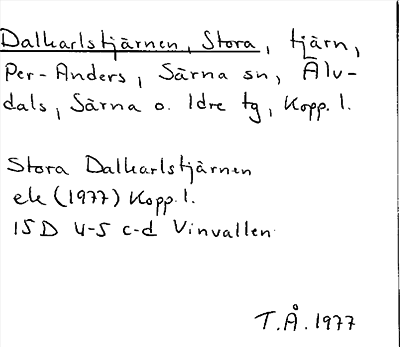 Dalkarlstjärnen, Stora, tjärn,
Per-Anders, Särna sn, Älv-
dals, Särna o. Idre tg, Kopp. l.
Stora Dalkarlstjärnen
ek (1977) Kopp. l.
15D 4-5 c-d Vinvallen
T.Å. 1977